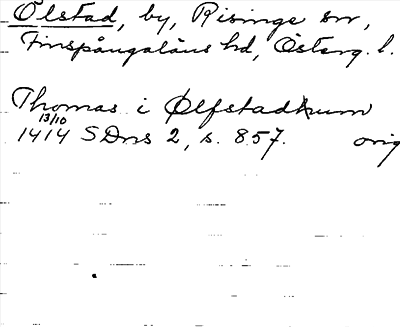 Ölstad, by, Risinge sn,
Finspångaläns hd, Österg. l.
Thomas i Ølfstadhum
13/10
1414 SDns 2, s. 857. orig